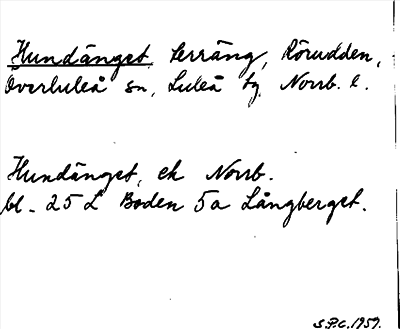 Hundänget, terräng, Rörudden,
Överluleå sn, Luleå tg. Norrb. l.
Hundänget, ek Norrb.
bl. 25 L Boden 5a Långberget.
S.P.C. 1959.